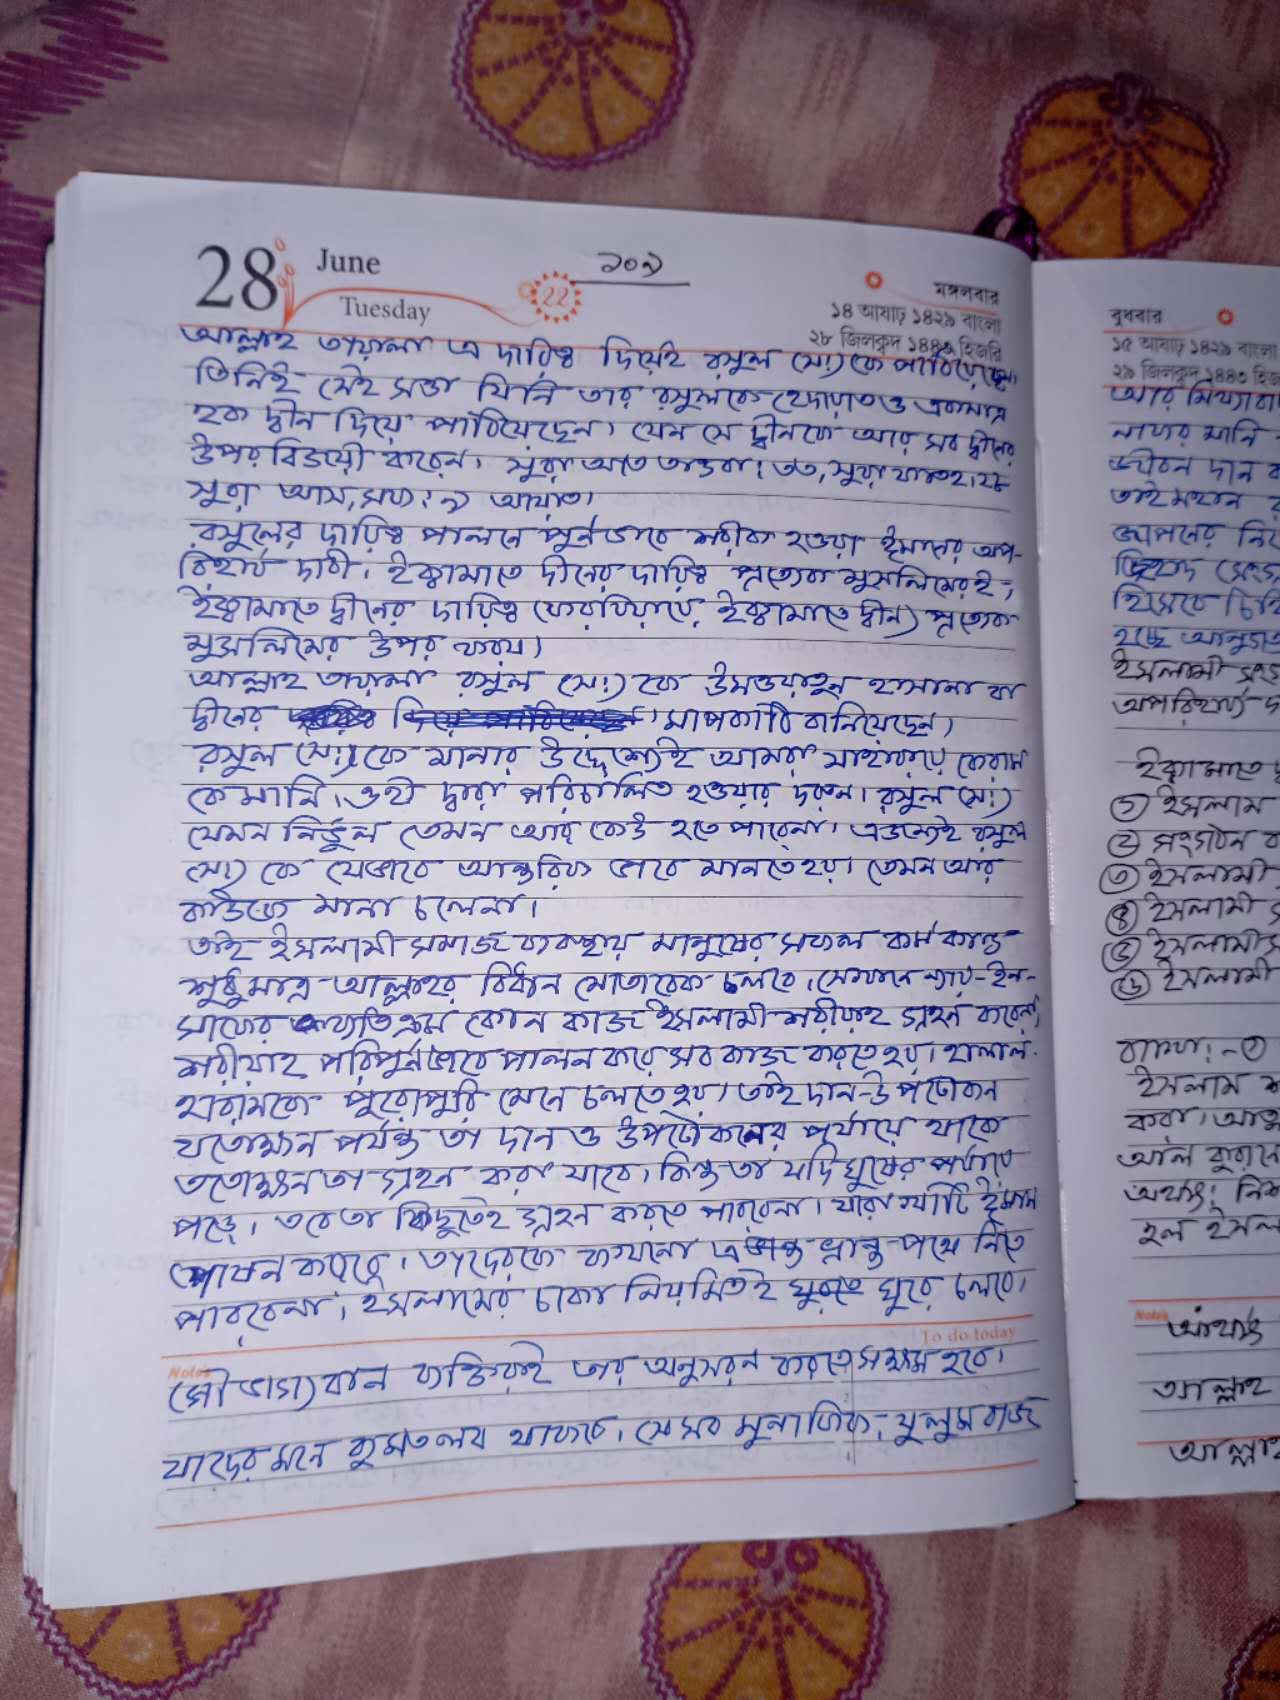 28 June
Tuesday
22
১০৯
মঙ্গলবার
১৪ আষাঢ় ১৪২৯ বাংলা
২৮ জিলকদ ১৪৪৩ হিজরি
আল্লাহ তায়ালা এ দায়িত্ব দিয়েই রসুল (সঃ) কে পাঠিয়েছেন।
তিনিই সেই সত্তা যিনি তার রসুলকে হেদায়াত ও একমাত্র
হক দ্বীন দিয়ে পাঠিয়েছেন। যেন সে দ্বীনকে আর সব দ্বীনের
উপর বিজয়ী করেন। সুরা আত তাওবা: ৩৩, সুরা ফাতহ: ২৮
সুরা আস, সফ: ৯ আয়াত।
রসুলের দায়িত্ব পালনে পুর্নভাবে শরীক হওয়া ইমানের অপ-
রিহার্য দাবী। ইক্বামাতে দীনের দায়িত্ব প্রত্যেক মুসলিমেরই;
ইক্বামাতে দ্বীনের দায়িত্ব ইক্বামাতে দ্বীন) প্রত্যেক
মুসলিমের উপর ফরয।
আল্লাহ তায়ালা রসুল (সঃ) কে উসওয়াতুন হাসানা বা
দ্বীনের মাপকাঠি বানিয়েছেন।
রসুল (সঃ) কে মানার উদ্দেশ্যেই আমরা সাহাবায়ে কেরাম
কে মানি। ওহী দ্বারা পরিচালিত হওয়ার দরুন। রসুল (সঃ)
যেমন নির্ভুল তেমন আর কেউ হতে পারেনা। এজন্যেই রসুল
(সঃ) কে যেভাবে আন্তরিক ভাবে মানতে হয়। তেমন আর
কাউকে মানা চলেনা।
তাই ইসলামী সমাজ ব্যবস্থায় মানুষের সকল কর্ম কান্ড
শুধুমাত্র আল্লাহর বিধান মোতাবেক চলবে। সেখানে ন্যায়-ইন-
সাফের ব্যতিক্রম কোন কাজ ইসলামী শরীয়াহ গ্রহন করেনা,
শরীয়াহ পরিপুর্নভাবে পালন করে সব কাজ করতে হয়। হালাল-
হারামকে পুরোপুরি মেনে চলতে হয়। তাই দান-উপঢৌকন
যতোক্ষন পর্যন্ত তা দান ও উপঢৌকনের পর্যায়ে থাকে
ততোক্ষন তা গ্রহন করা যাবে। কিন্তু তা যদি ঘুষের পর্যায়ে
পড়ে। তবে তা কিছুতেই গ্রহন করতে পারবেনা। যারা খাটি ইমান
পোষন করেছে। তাদেরকে কখনো ভ্রান্ত পথে নিতে
পারবেনা। ইসলামের চাকা নিয়মিতই ঘুরতে ঘুরে চলবে।
To do today
Notes
সৌভাগ্যবান ব্যক্তিরাই তার অনুসরন করতে সক্ষম হবে।
যাদের মনে কুমতলব থাকবে। সে সব মুনাফিক, যুলুমবাজ
বুধবার
১৫ আষাঢ় ১৪২৯ বাংলা
২৯ জিলকদ ১৪৪৩
আর মিথ্যা
জীবন দান
তাই মহান
হিসেবে
হচ্ছে
ইসলামী
অপরিহার্য
ইক্বামাতে
① ইসলাম
② সংগঠন
③ ইসলামী
④ ইসলামী
⑤ ইসলামী
⑥ ইসলামী
ব্যাখ্যা:- ①
ইসলাম
করা।
আল কুরআনে
অর্থাৎ:
হল ইসলা
Notes
অর্থাৎ
আল্লাহ
আল্লাহ